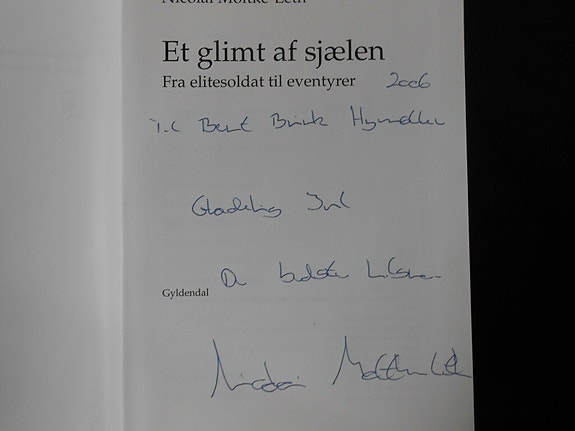 Nicolai Moltke-Leth
Et glimt af sjælen
Fra elitesoldat til eventyrer
2006
Til Bent Brink
Glædelig Jul
De bedste hilsner
Gyldendal
Nicolai Moltke-Leth